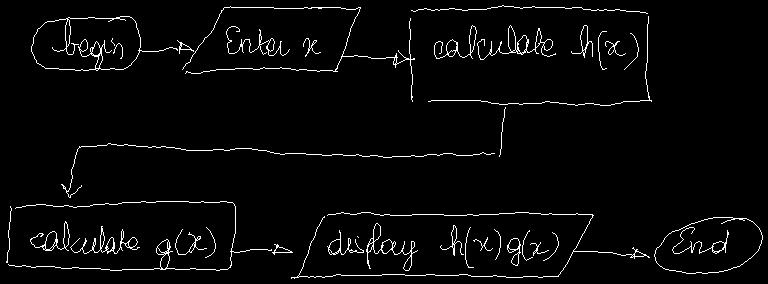 begin Enter x calculate h(x)
calculate g(x) display h(x) g(x) End